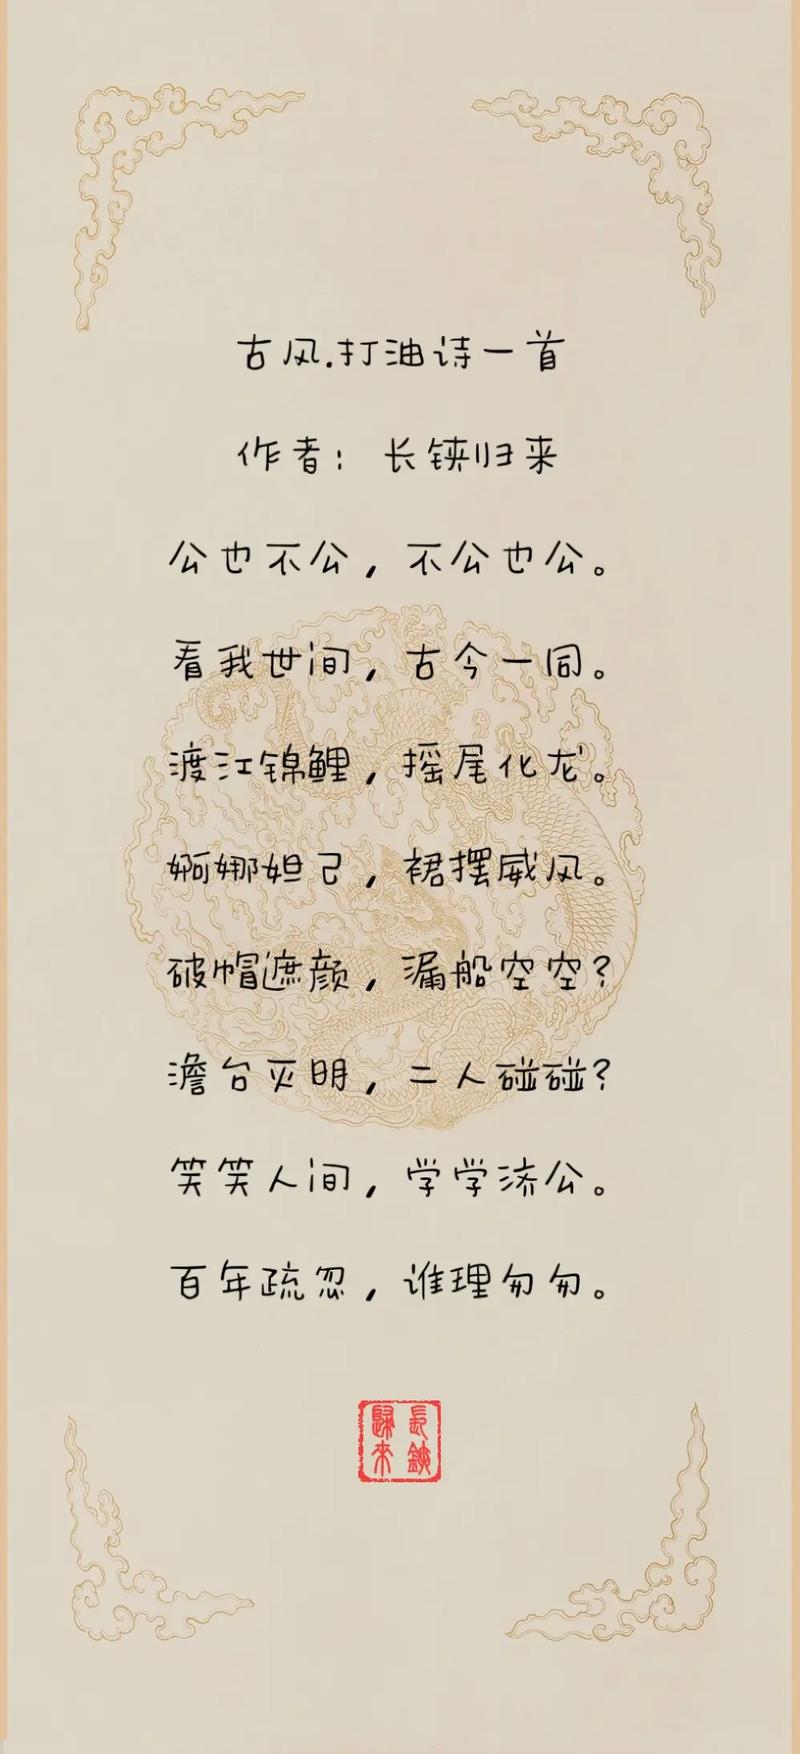 古风.打油诗一首
作者：长铗归来
公也不公，不公也公。
看我世间，古今一同。
渡江锦鲤，摇尾化龙。
婀娜妲己，裙摆威风。
破帽遮颜，漏船空空？
澹台灭明，二人碰碰？
笑笑人间，学学济公。
百年疏忽，谁理匆匆。
長鋏
歸來